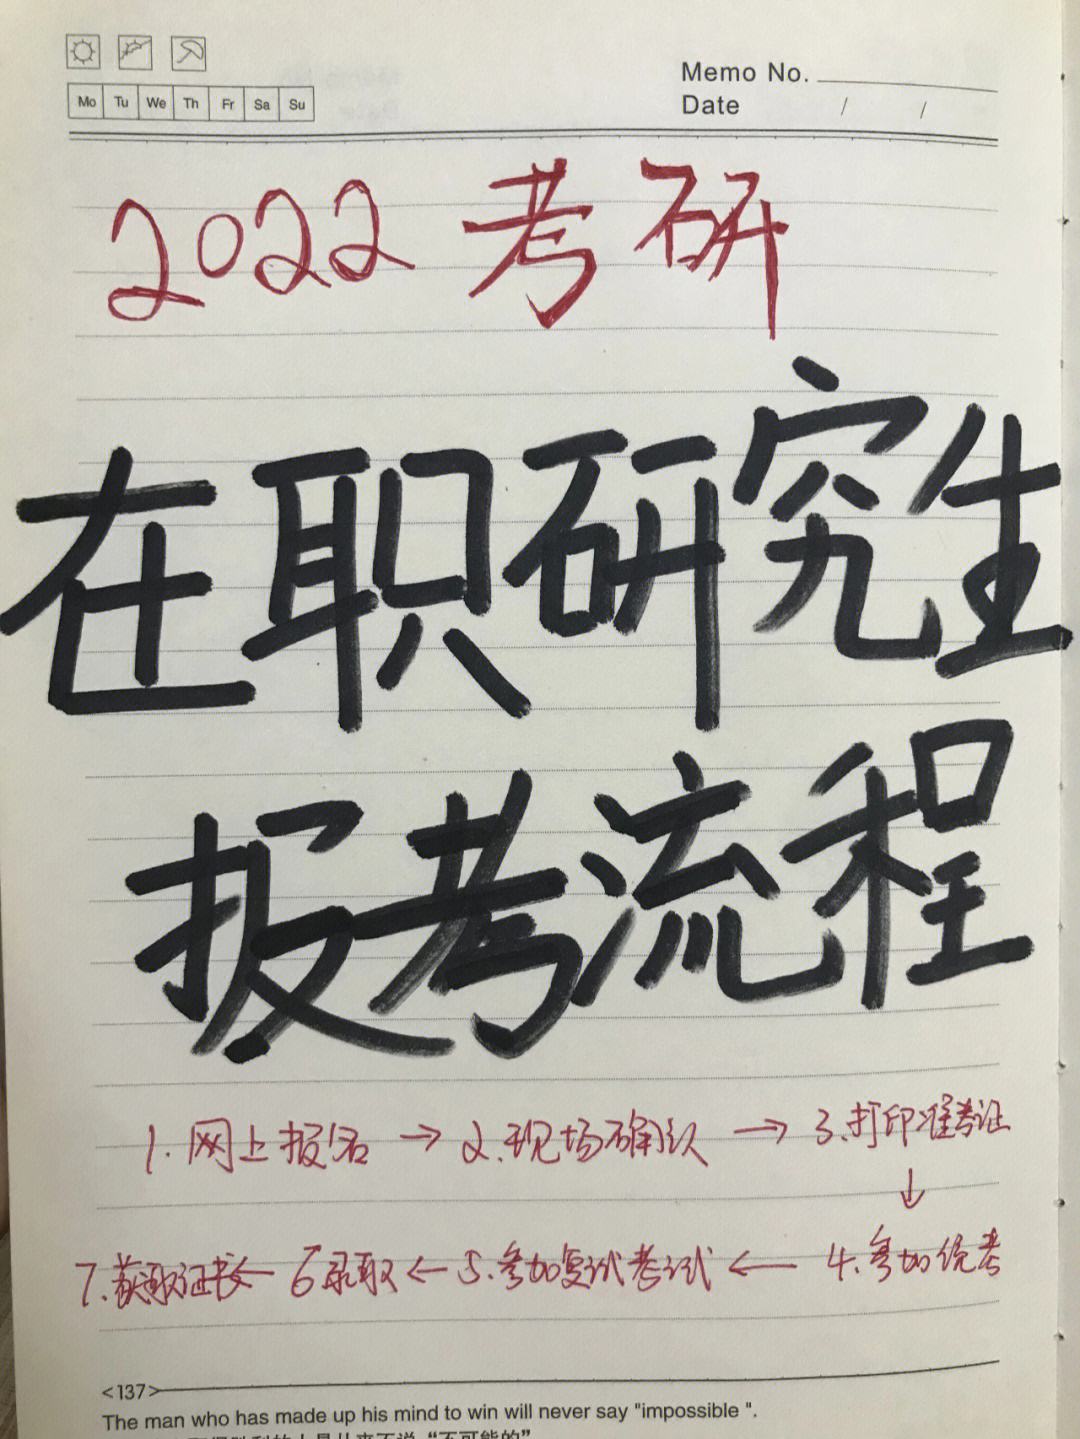 Mo Tu We Th Fr Sa Su
Memo No.
Date / /
2022 考研
在职研究生
报考流程
1.网上报名 → 2.现场确认 → 3.打印准考证
↓
7.获取证书 ← 6录取 ← 5.参加复试考试 ← 4.参加统考
<137>
The man who has made up his mind to win will never say "impossible ".
是从来不说“不可能的”